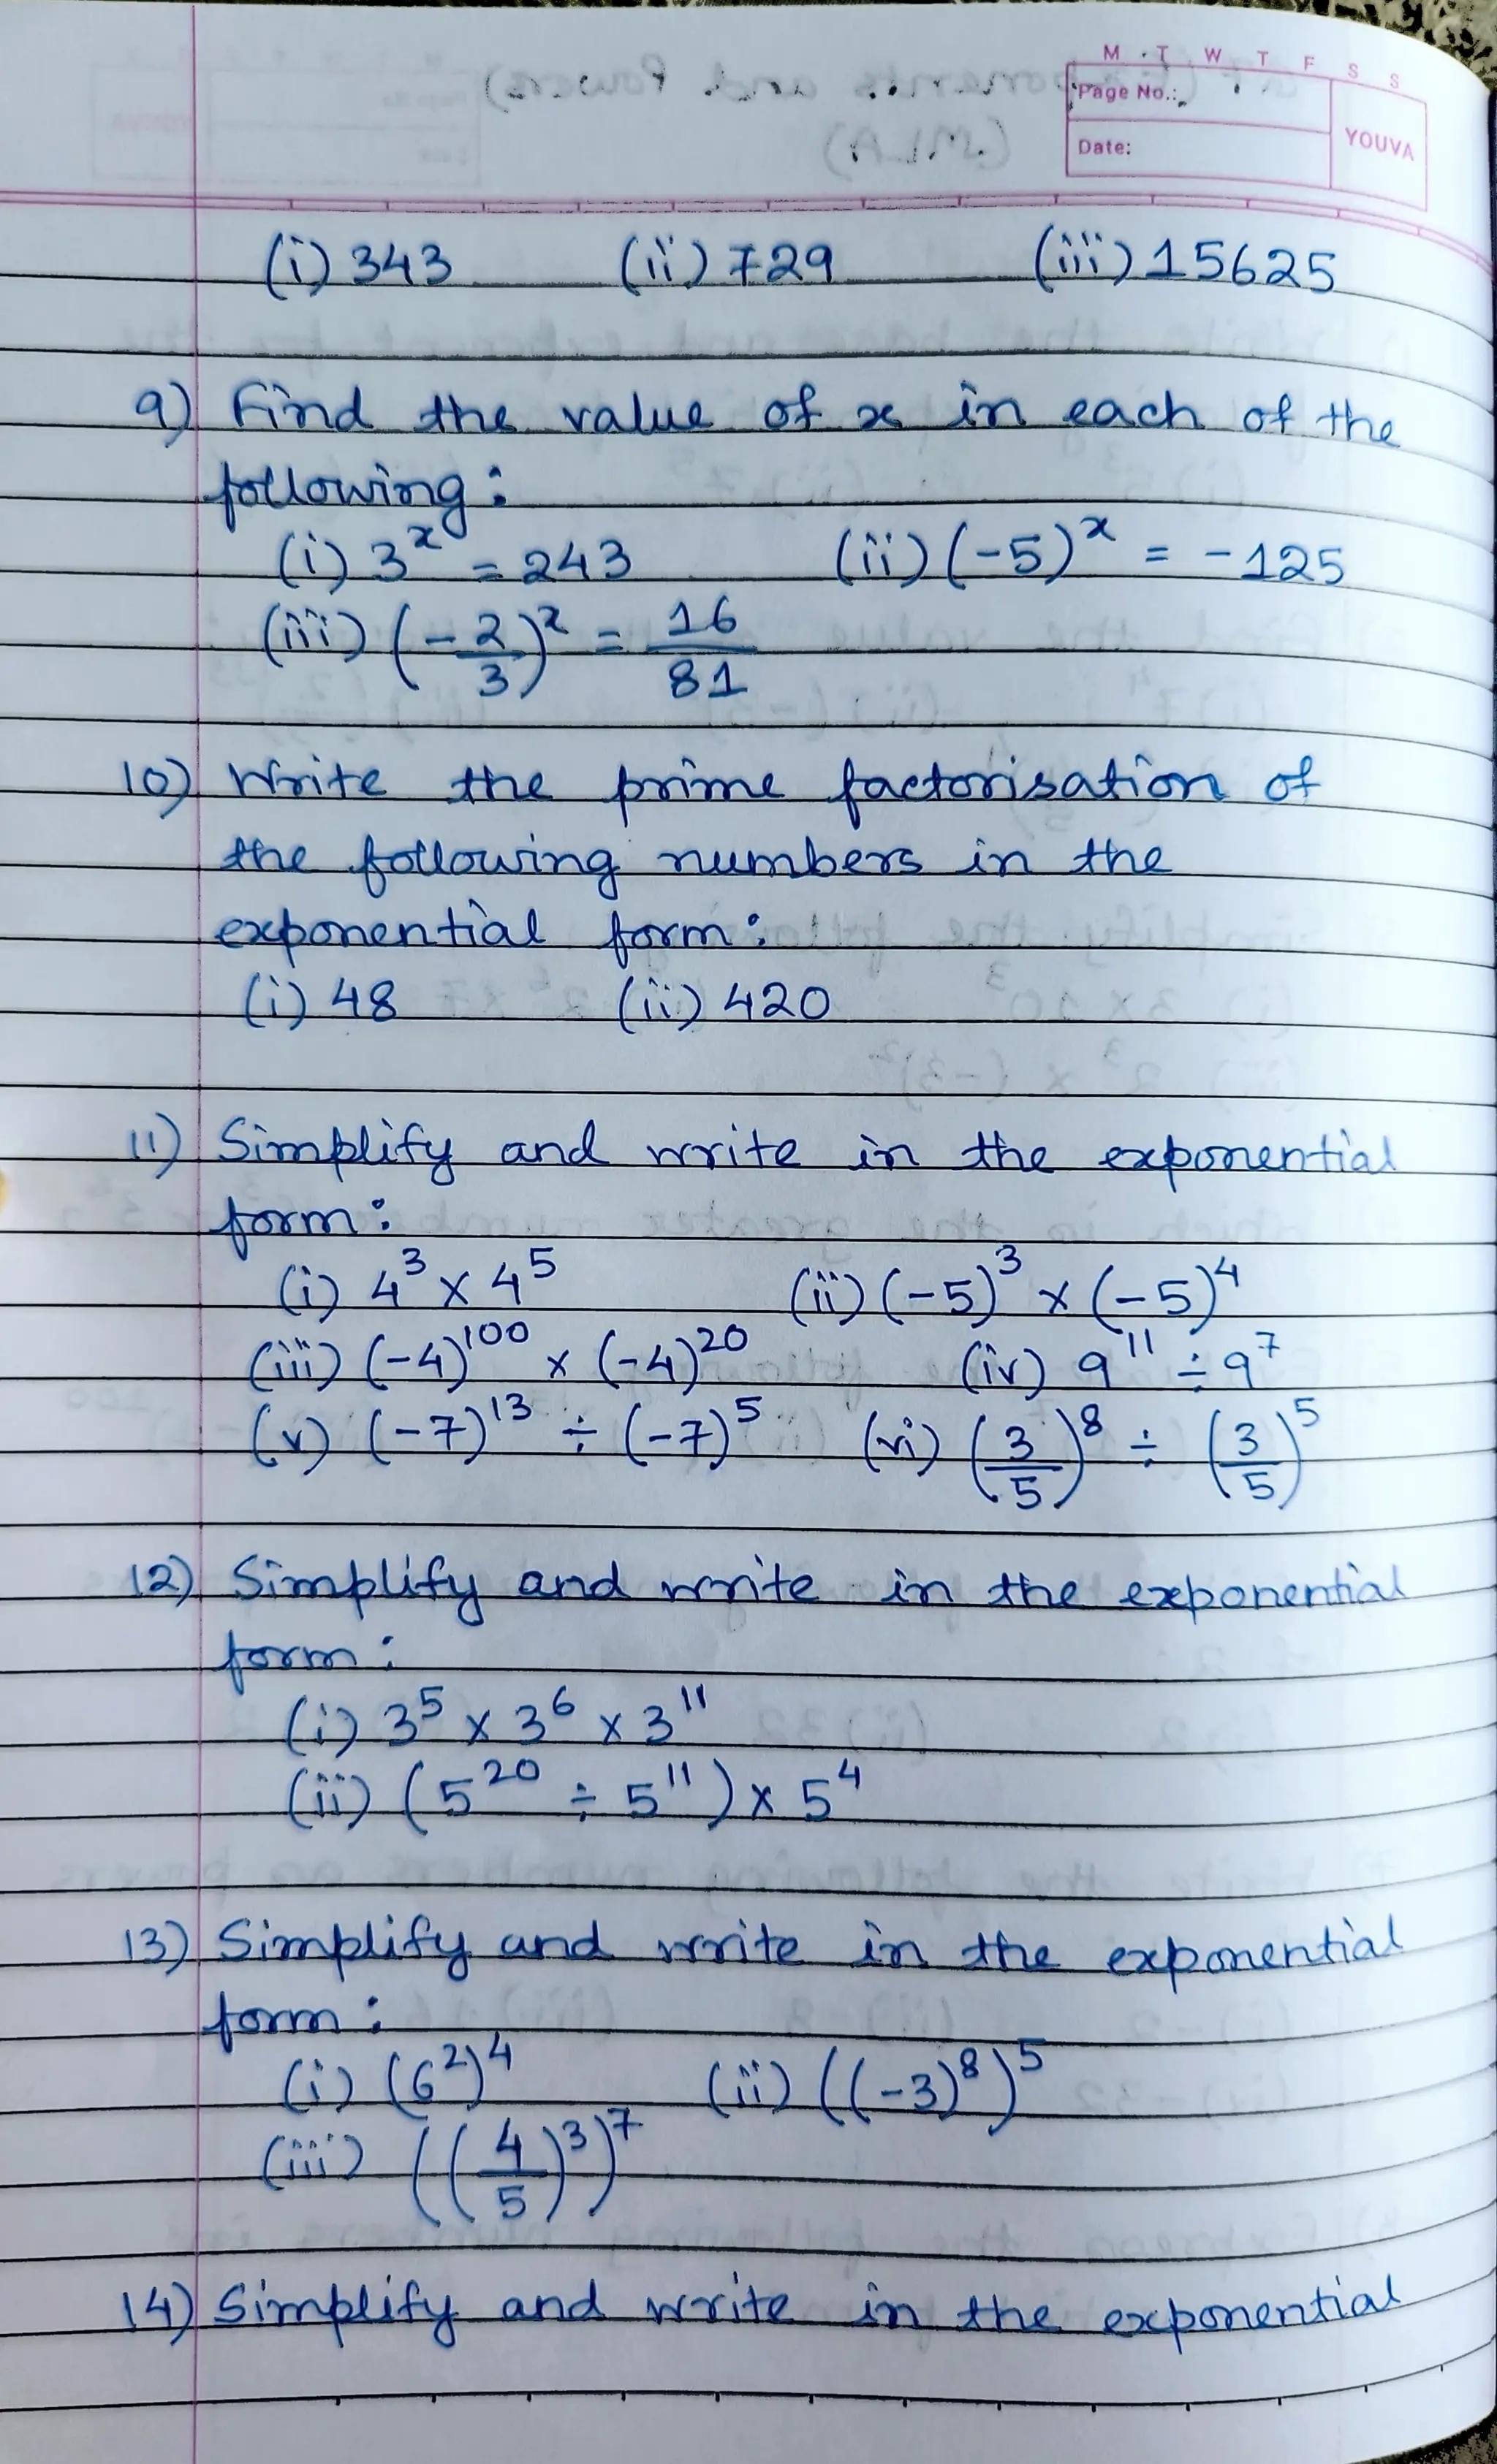 M T W T F S S
Page No.:
YOUVA
Date:
(i) 343 (ii) 729 (iii) 15625
9) Find the value of x in each of the
following:
(i) 3^x = 243 (ii) (-5)^x = -125
(iii) (-2/3)^x = 16/81
10) Write the prime factorisation of
the following numbers in the
exponential form:
(i) 48 (ii) 420
11) Simplify and write in the exponential
form:
(i) 4³ × 4⁵ (ii) (-5)³ × (-5)⁴
(iii) (-4)¹⁰⁰ × (-4)²⁰ (iv) 9¹¹ ÷ 9⁷
(v) (-7)¹³ ÷ (-7)⁵ (vi) (3/5)⁸ ÷ (3/5)⁵
12) Simplify and write in the exponential
form:
(i) 3⁵ × 3⁶ × 3¹¹
(ii) (5²⁰ ÷ 5¹¹) × 5⁴
13) Simplify and write in the exponential
form:
(i) (6²)⁴ (ii) ((-3)⁸)⁵
(iii) ((4/5)³)⁷
14) Simplify and write in the exponential